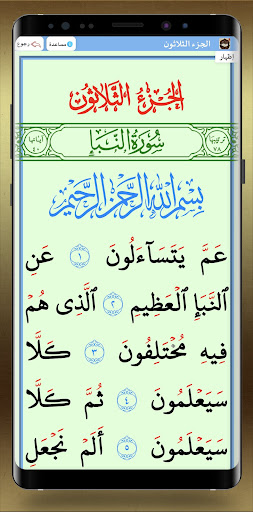 الجزء الثلاثون مساعدة رجوع
إظهار
الجُزءُ الثَّلاثُون
ترتيبها ٧٨ سُورَةُ النَّبَإِ آياتها ٤٠
بِسْمِ اللَّهِ الرَّحْمَٰنِ الرَّحِيمِ
عَمَّ يَتَسَآءَلُونَ ١ عَنِ
ٱلنَّبَإِ ٱلْعَظِيمِ ٢ ٱلَّذِى هُمْ
فِيهِ مُخْتَلِفُونَ ٣ كَلَّا
سَيَعْلَمُونَ ٤ ثُمَّ كَلَّا
سَيَعْلَمُونَ ٥ أَلَمْ نَجْعَلِ